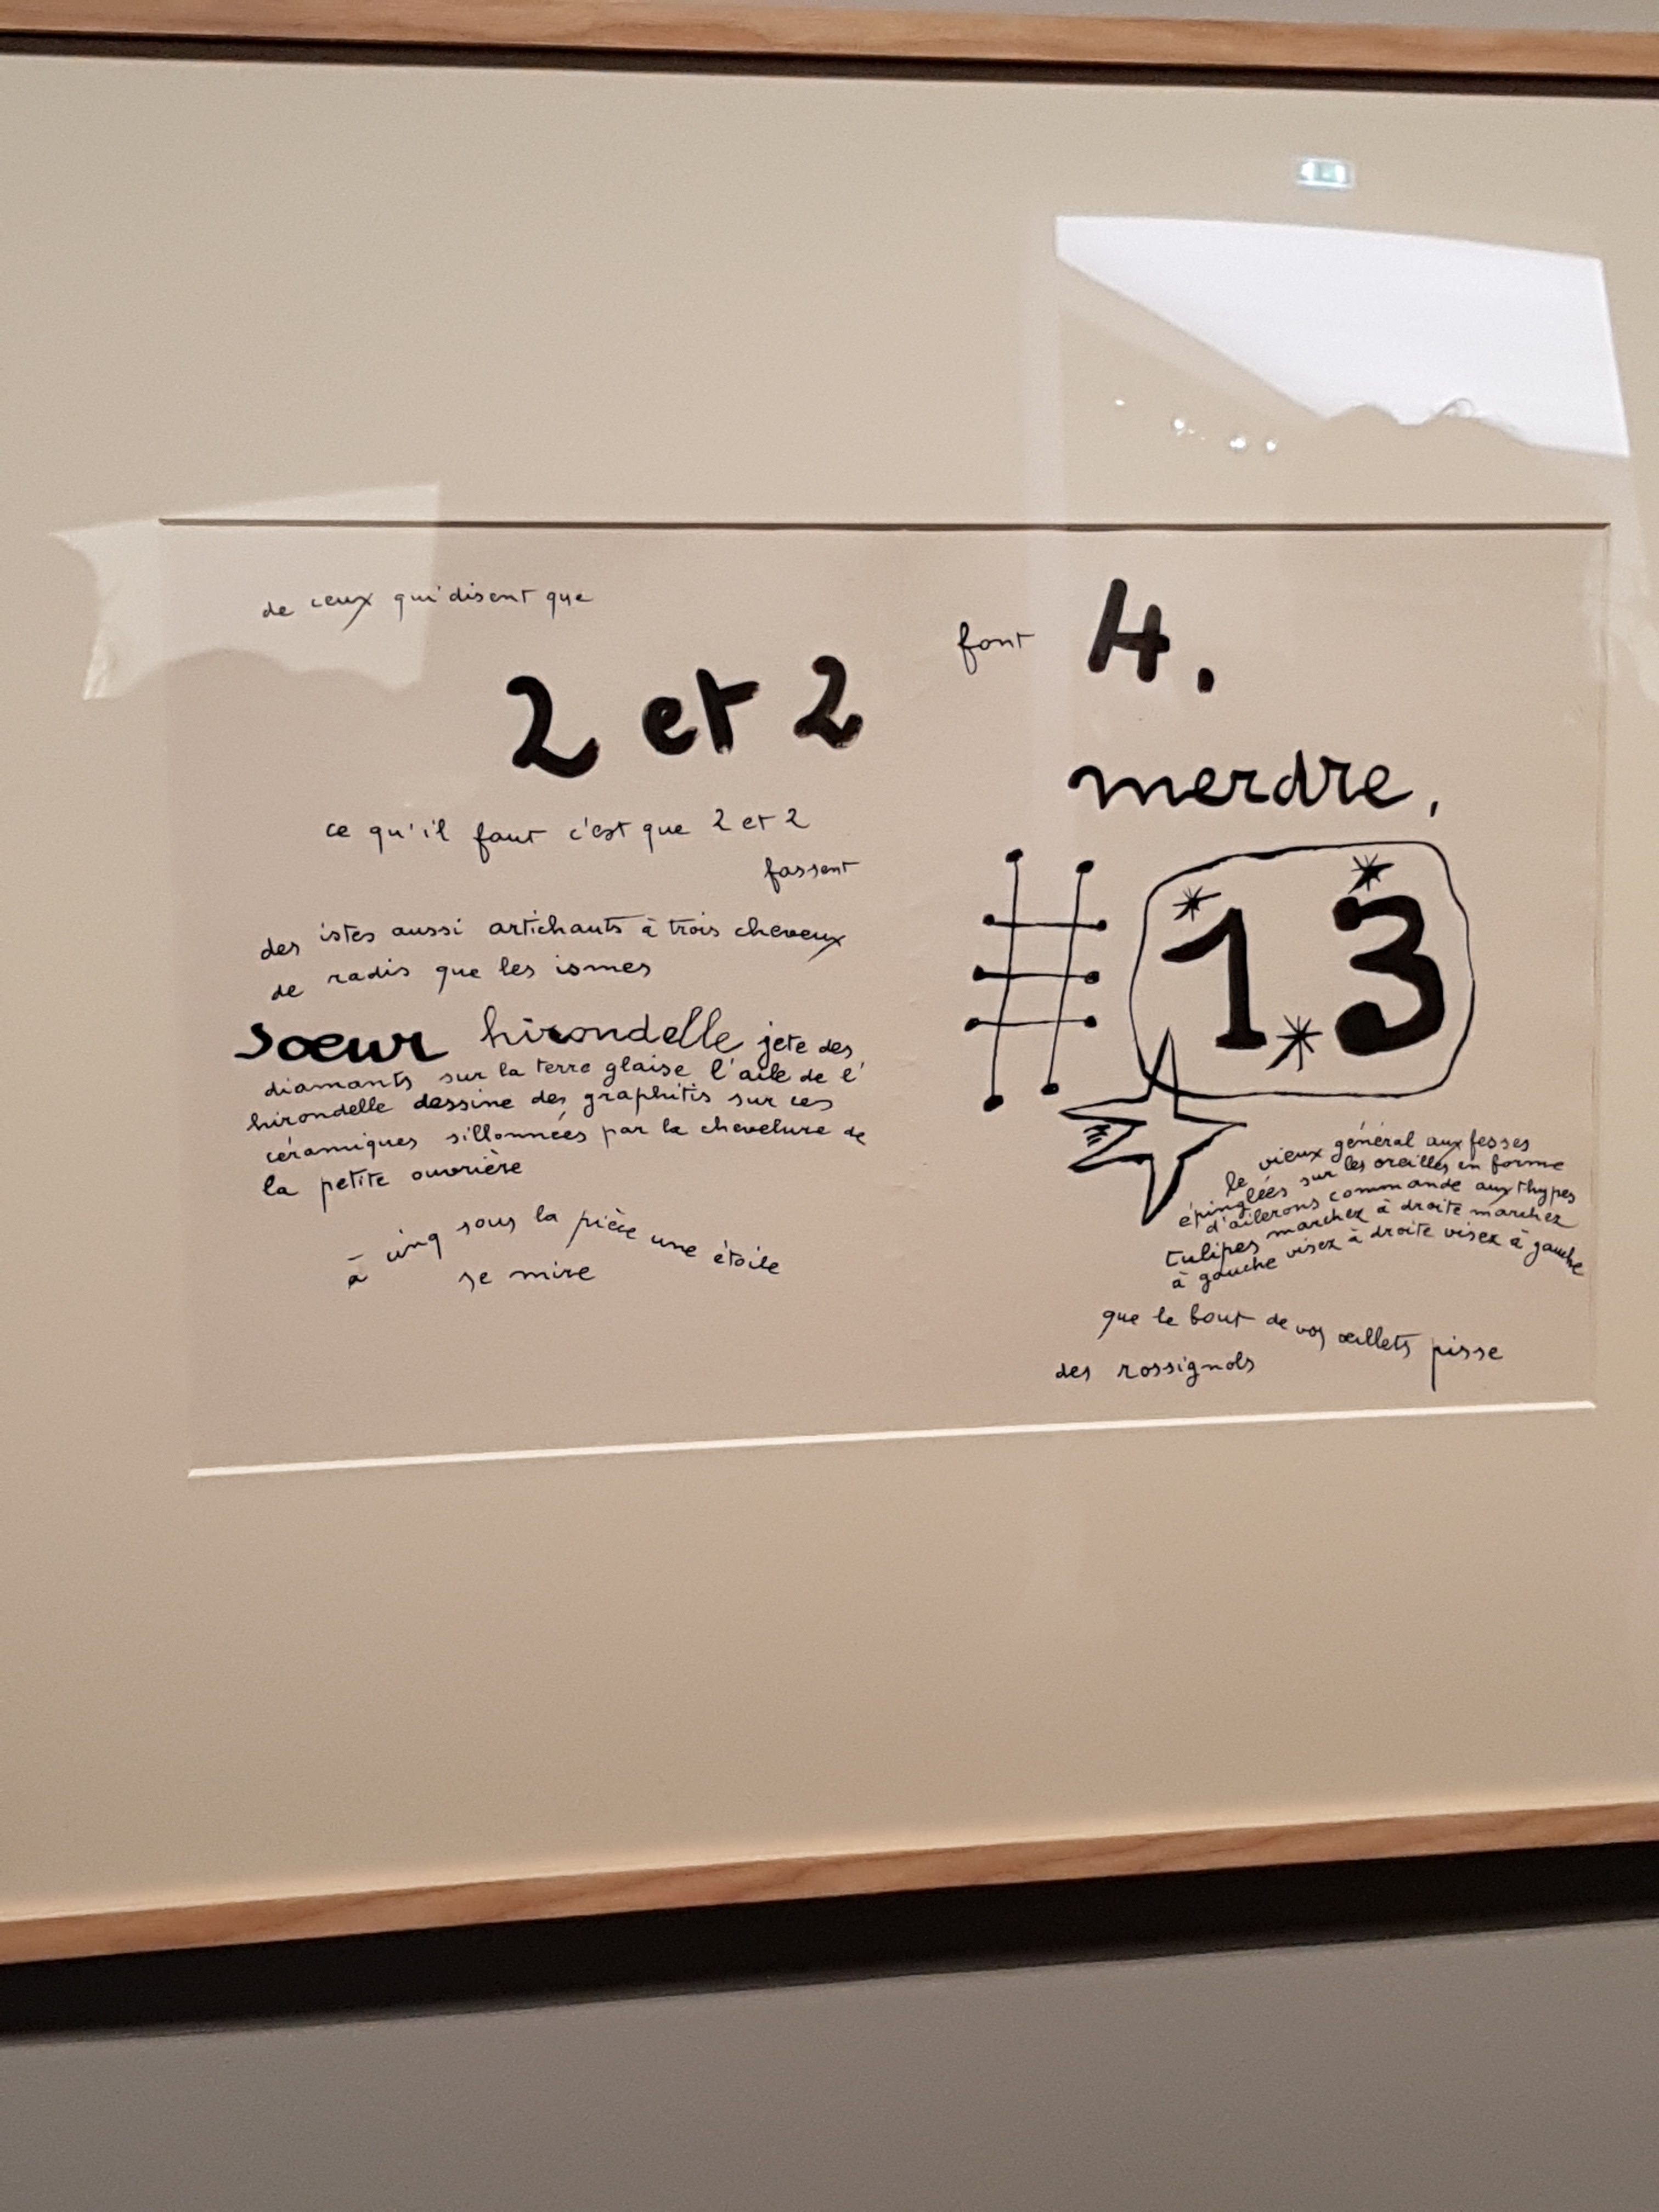 de ceux qui disent que
2 et 2 font 4.
merdre,
ce qu'il faut c'est que 2 et 2
fassent
# 13
des istes aussi artichauts à trois cheveux
de radis que les ismes
soeur hirondelle jete des
diamants sur la terre glaise l'aile de l'
hirondelle dessine des graphitis sur ces
céramiques sillonnées par la chevelure de
la petite ouvrière
à cinq sous la pièce une étoile
se mire
le vieux général aux fesses
épinglées sur les oreilles en forme
d'ailerons commande aux thypes
tulipes marchez à droite marchez
à gauche visez à droite visez à gauche
que le bout de vos œillets pisse
des rossignols